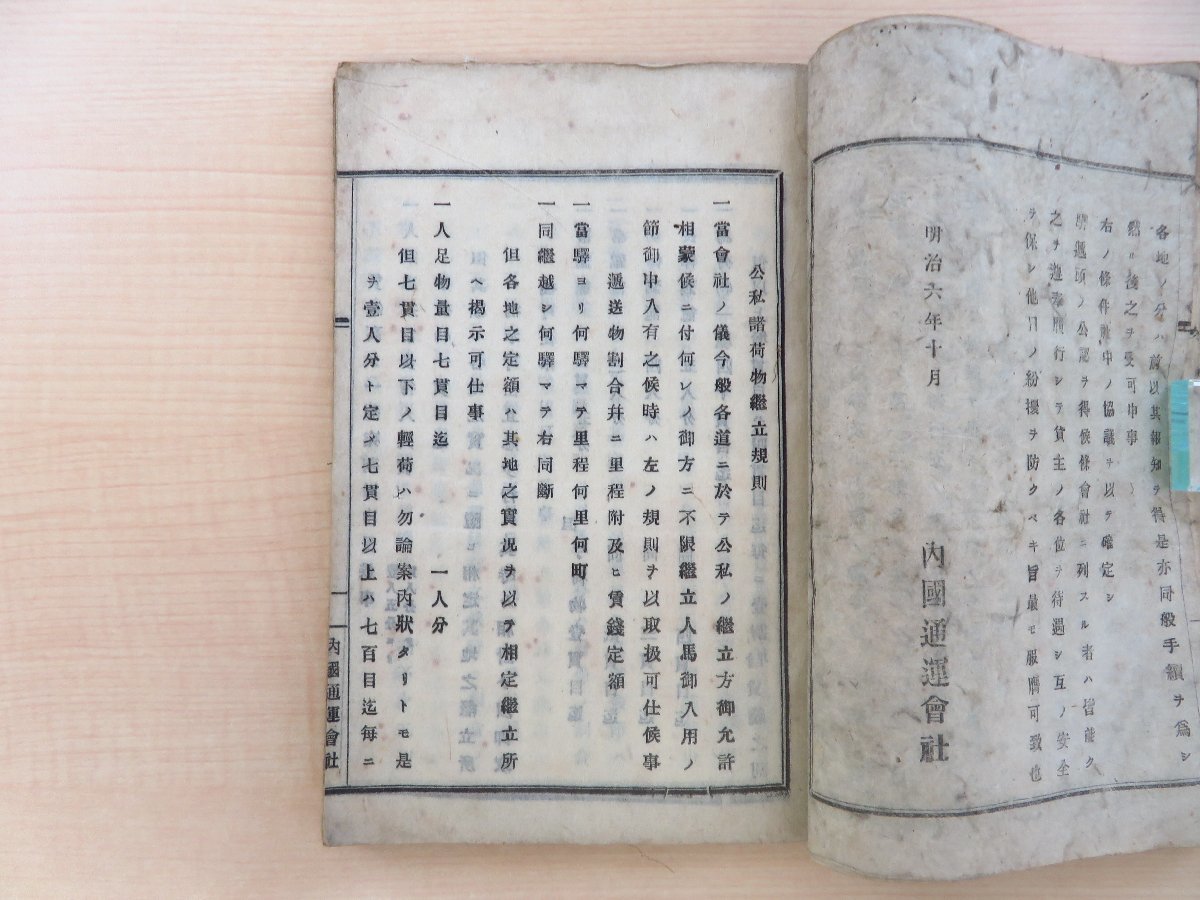 各地ノ分ハ前以其報知ヲ得是亦同般手續ヲ爲シ
然ル後之ヲ受可申事
右ノ條件社中ノ協議ヲ以テ確定シ
驛遞頭ノ公認ヲ得候條會社ニ列スル者ハ皆能ク
之ヲ遵奉履行シテ貨主ノ各位ヲ待遇シ互ノ安全
ヲ保シ他日ノ紛擾ヲ防クベキ旨最モ服膺可致也
明治六年十月
內國通運會社
公私諸荷物繼立規則
一當會社ノ儀今般各道ニ於テ公私ノ繼立方御允許
相蒙候ニ付何レノ御方ニ不限繼立人馬御入用ノ
節御申入有之候時ハ左ノ規則ヲ以取扱可仕候事
遞送物割合幷ニ里程附及ヒ賃錢定額
一當驛ヨリ何驛マテ里程何里何町
一同繼越シ何驛マテ右同斷
但各地之定額ハ其地之實況ヲ以テ相定繼立所
ヘ揭示可仕事
一人足物量目七貫目迄 一人分
但七貫目以下ノ輕荷ハ勿論案內狀タリトモ是
ヲ壹人分ト定メ七貫目以上ハ七百目迄每ニ
內國通運會社